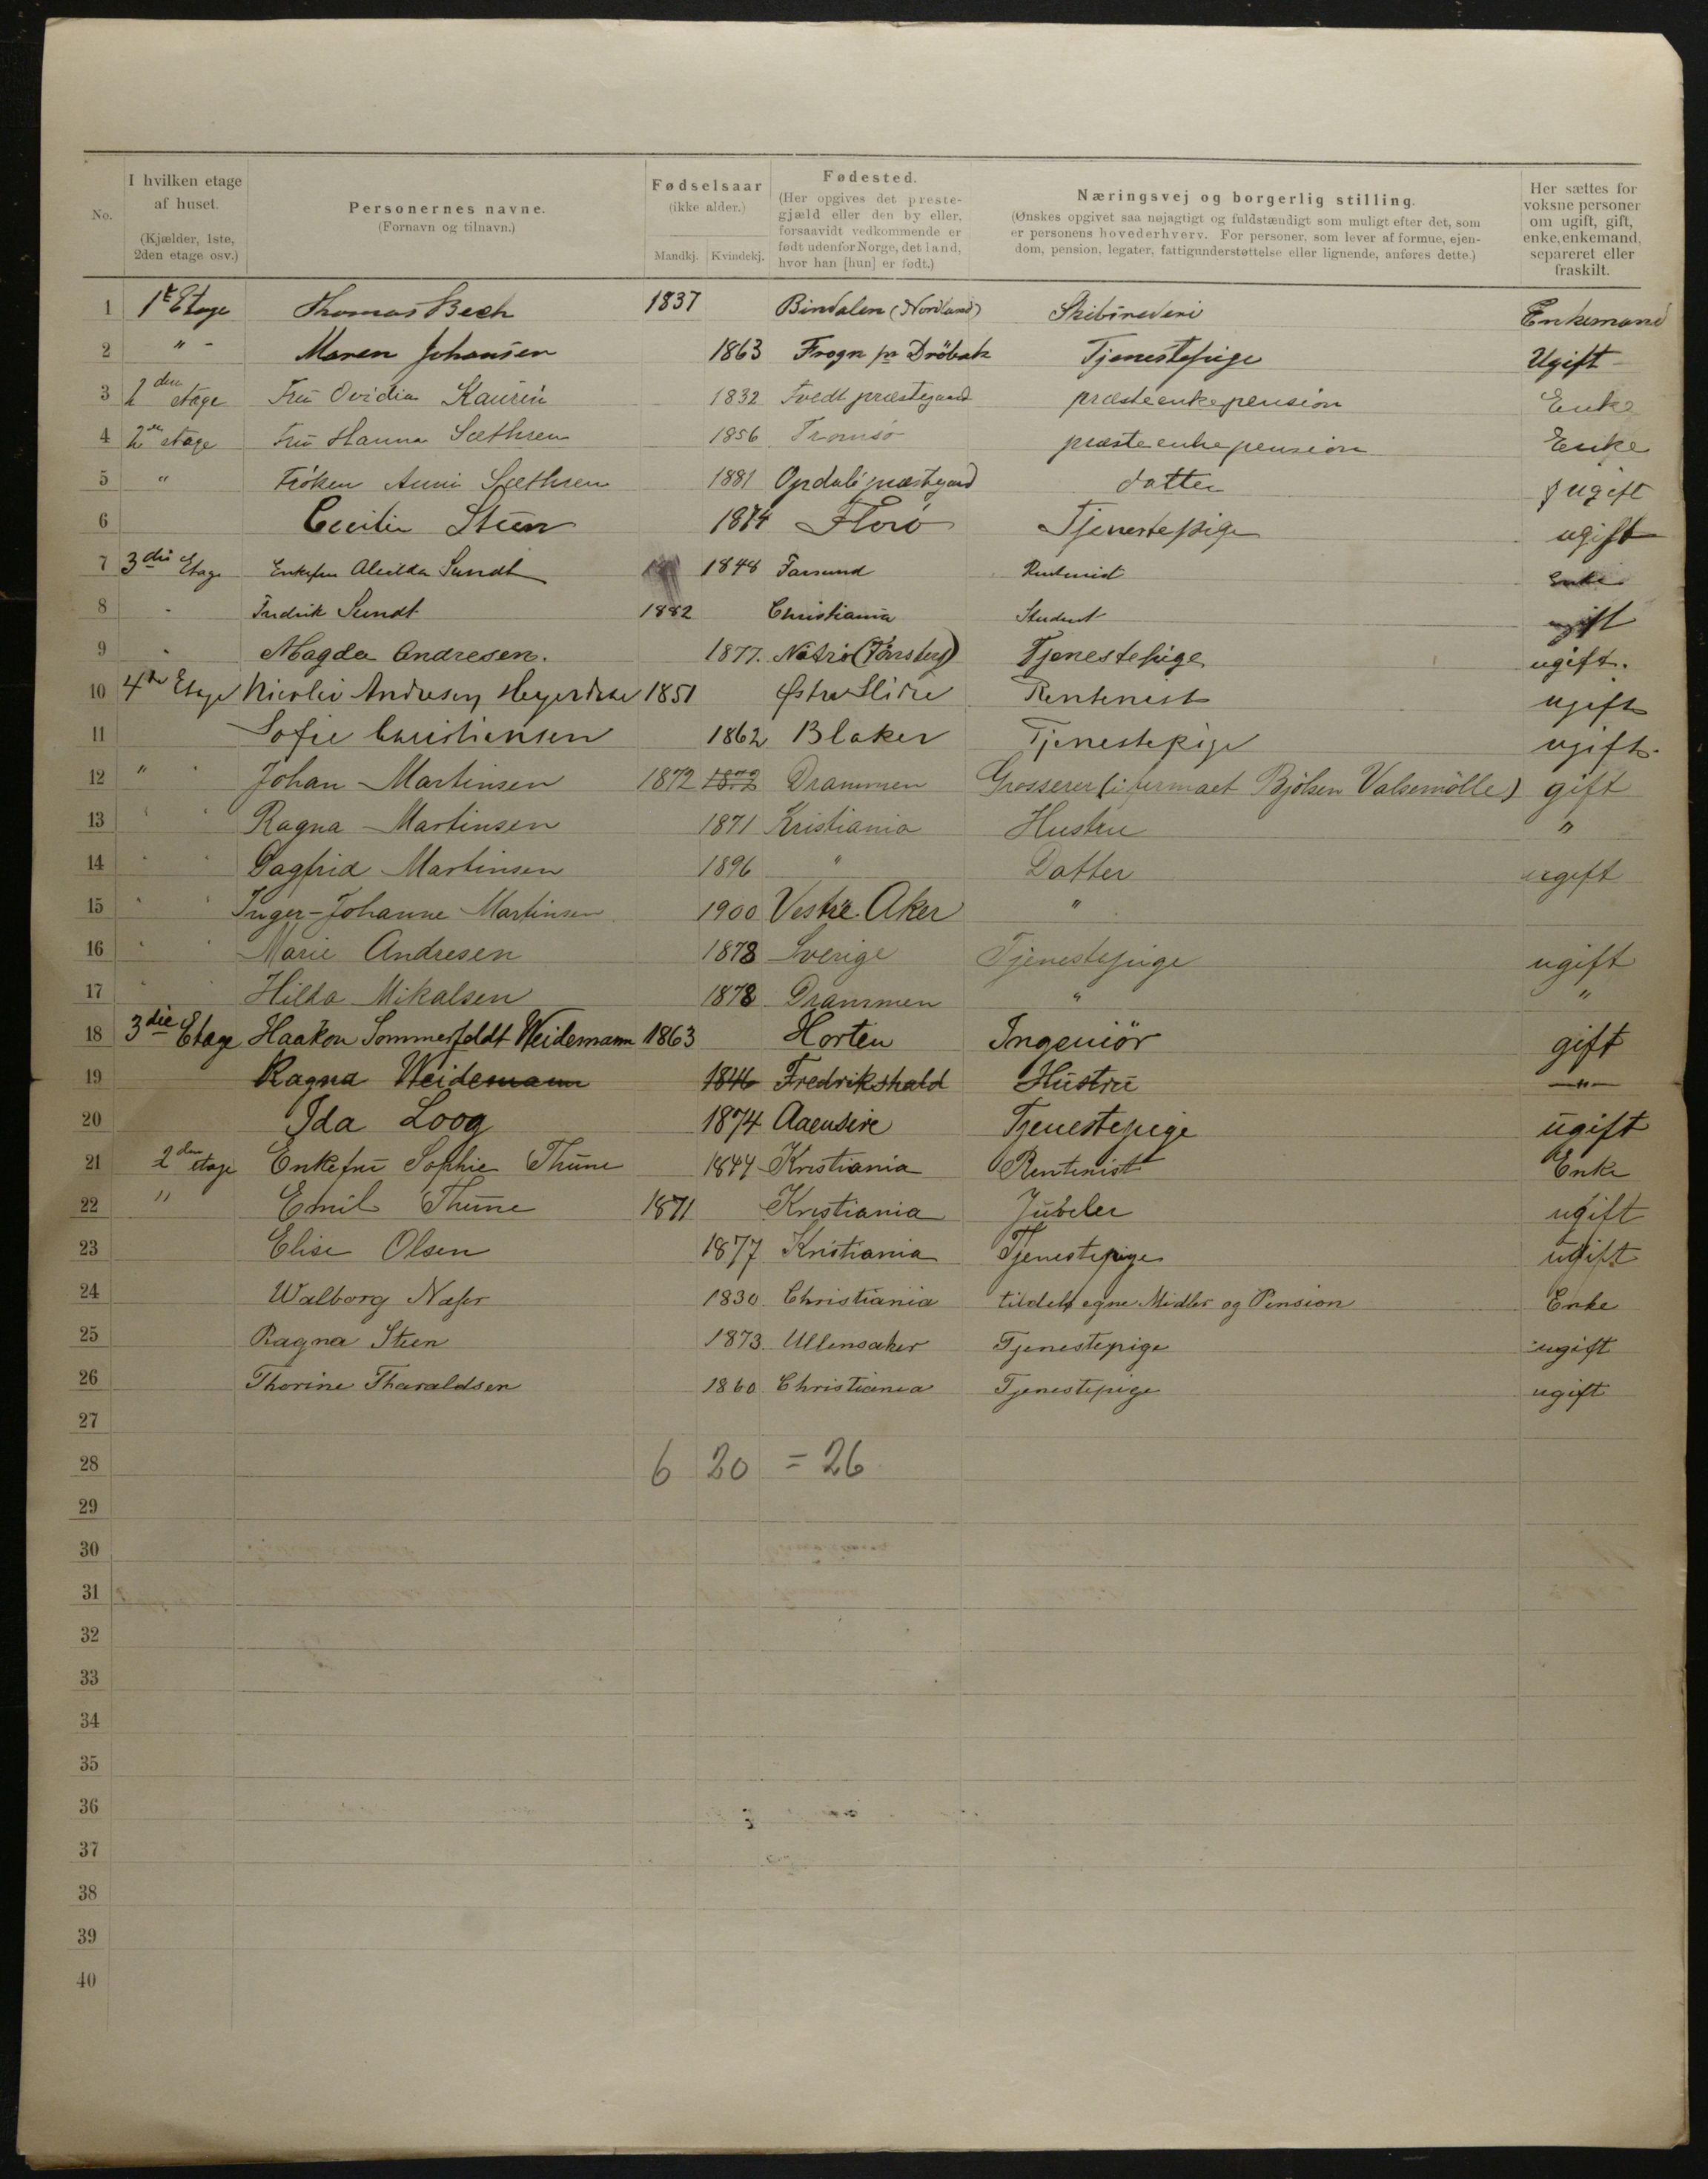 No.
I hvilken etage af huset. (Kjælder, 1ste, 2den etage osv.)
Personernes navne. (Fornavn og tilnavn.)
Fødselsaar (ikke alder.) Mandkj. Kvindekj.
Fødested. (Her opgives det prestegjæld eller den by eller, forsaavidt vedkommende er født udenfor Norge, det land, hvor han [hun] er født.)
Næringsvej og borgerlig stilling. (Ønskes opgivet saa nøjagtigt og fuldstændigt som muligt efter det, som er personens hovederhverv. For personer, som lever af formue, ejendom, pension, legater, fattigunderstøttelse eller lignende, anføres dette.)
Her sættes for voksne personer om ugift, gift, enke, enkemand, separeret eller fraskilt.
1 1ste Etage Thomas Bech 1837 Bindalen (Nordland) Skibsrederi Enkemand
2 " - Maren Johansen 1863 Frogn pr Dröbak Tjenestepige Ugift
3 2den etage Frü Ovidia Kaurin 1832 Tvedt præstegaard præsteenkepension Enke
4 2den etage Frü Hanna Sæthren 1856 Tromsö præsteenkepension Enke
5 " Fröken Anni Sæthren 1881 Opdals præstegaard datter ugift
6 Cecilie Steen 1874 Florö Tjenestepige ugift
7 3die Etage Enkefru Alvilda Sundt 1848 Farsund Rentenist Enke
8 " Fredrik Sundt 1882 Christiania Student ugift
9 " Magda Andresen. 1877. Nötrö (Tönsberg) Tjenestepige ugift.
10 4de Etage Nicolai Andresen 1851 Østre Slidre Rentenist ugift
11 Sofie Christiansen 1862 Blaker Tjenestepige ugift.
12 " " Johan Martinsen 1872 1872 Drammen Grosserer (i firmaet Bjölsen Valsemölle) gift
13 " " Ragna Martinsen 1871 Kristiania Hustru "
14 " " Dagfrid Martinsen 1896 " Datter ugift
15 " " Inger-Johanne Martinsen 1900 Vestre Aker "
16 " " Marie Andresen 1878 Sverige Tjenestepige ugift
17 " " Hilda Mikalsen 1878 Drammen " "
18 3die Etage Haakon Sommerfeldt Weidemann 1863 Horten Ingeniör gift
19 Ragna Weidemann 1846 Fredrikshald Hüstrü —"—
20 Ida Loog 1874 Aaensire Tjenestepige ügift
21 2den etage Enkefrü Sophie Thüne 1844 Kristiania Rentenist Enke
22 " Emil Thüne 1871 Kristiania Jüveler ugift
23 Elise Olsen 1877 Kristiania Tjenestepige ugift
24 Walborg Naser 1830 Christiania tildels egne Midler og Pension Enke
25 Ragna Steen 1873 Ullensaker Tjenestepige ugift
26 Thorine Tharaldsen 1860 Christiania Tjenestepige ugift
27
28 6 20 = 26
29
30
31
32
33
34
35
36
37
38
39
40